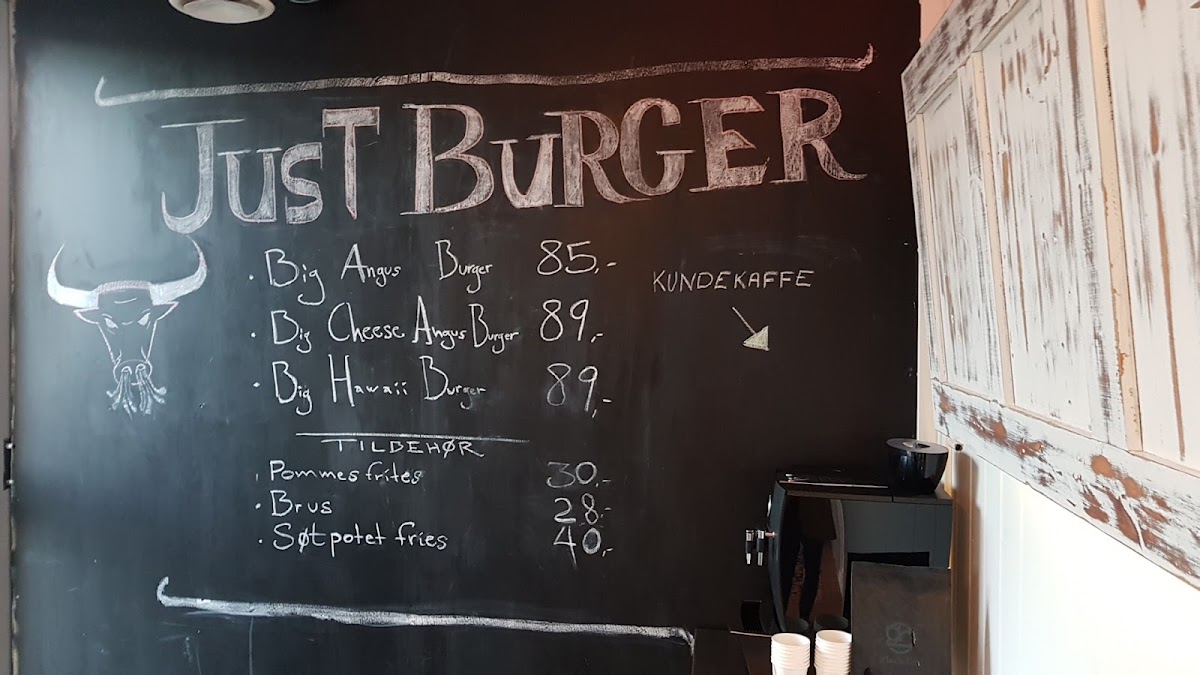 JUST BURGER
· Big Angus Burger 85,-
· Big Cheese Angus Burger 89,-
· Big Hawaii Burger 89,-
KUNDEKAFFE
TILBEHØR
· Pommes frites 30,-
· Brus 28,-
· Søtpotet fries 40,-